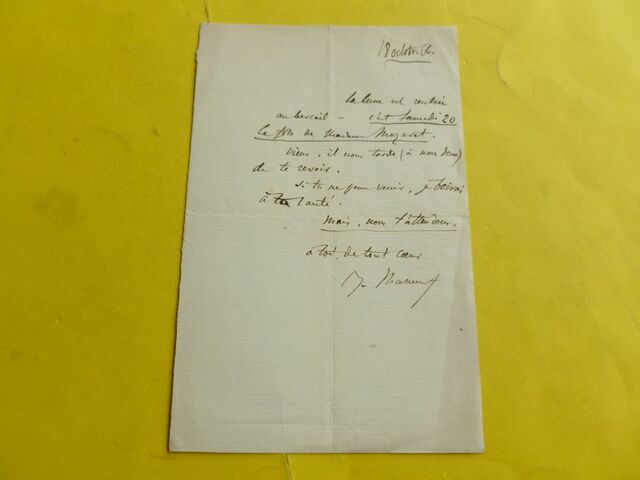 18 octobre
la lune est rentrée
au bercail – c'est Samedi 20
la fête de Madame Mazerat.
Viens, il nous tarde (à nous deux)
de te revoir.
Si tu ne peux venir, je boirai
à ta santé.
Mais, nous t'attendons.
à toi, de tout cœur